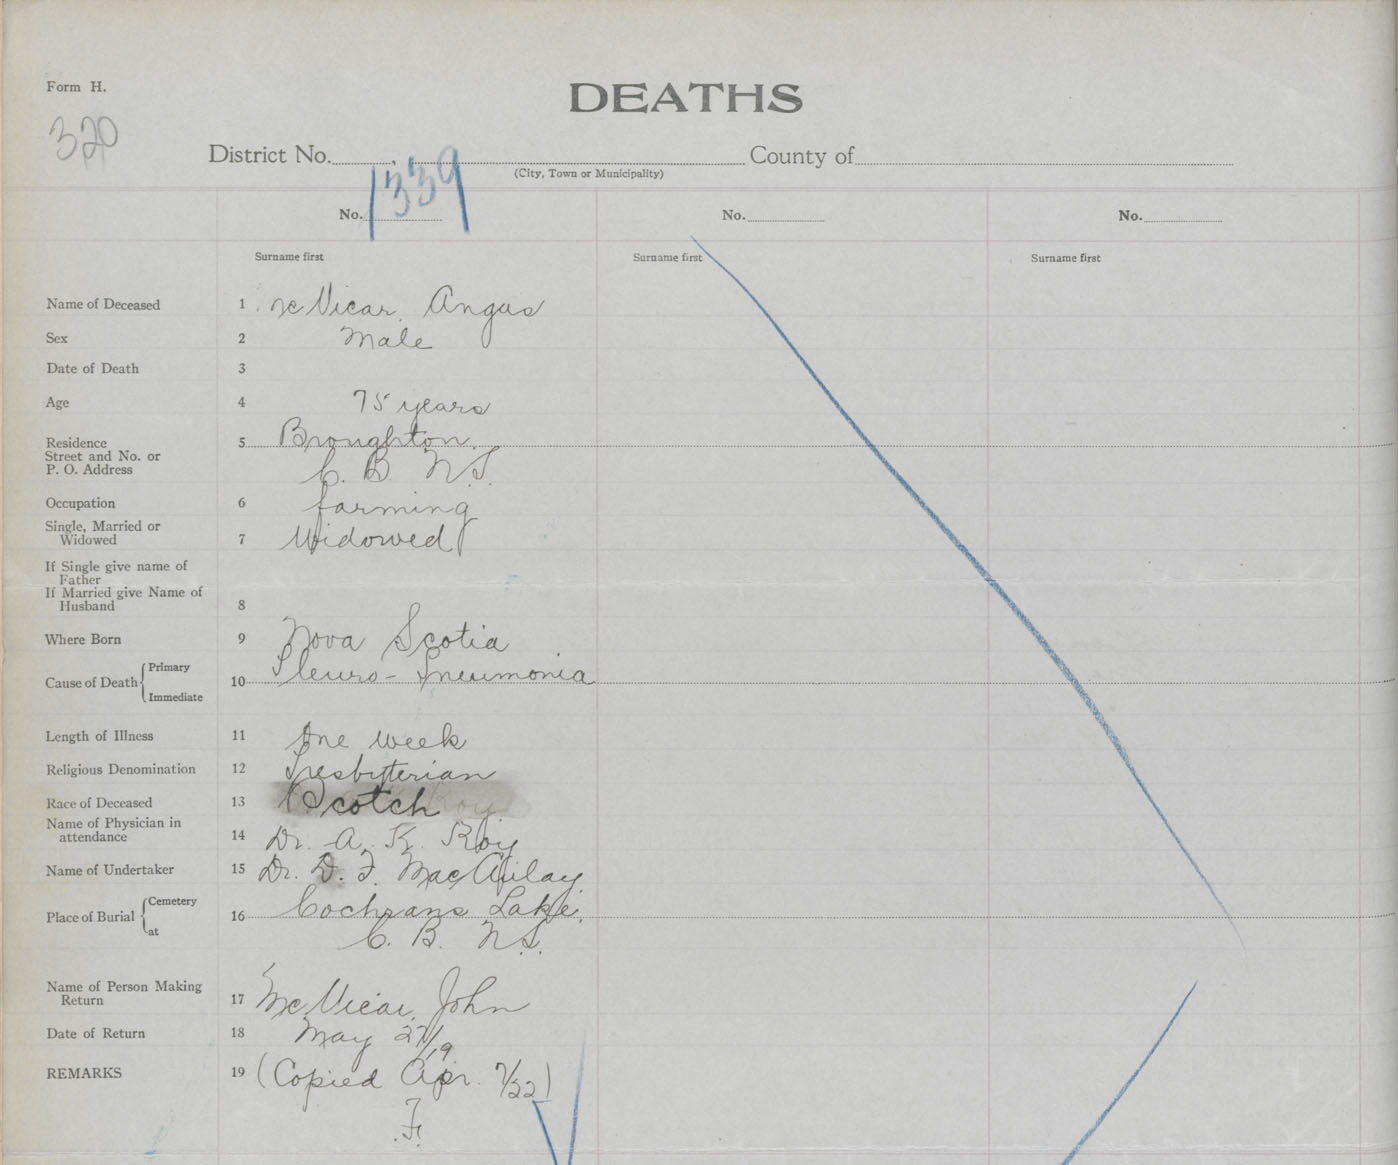 Form H.
DEATHS
320
District No. , County of
(City, Town or Municipality)
No. 1339 No. No.
Surname first Surname first Surname first
Name of Deceased 1 McVicar, Angus
Sex 2 Male
Date of Death 3
Age 4 75 years
Residence 5 Broughton,
Street and No. or
P. O. Address C. B. N.S.
Occupation 6 farming
Single, Married or
Widowed 7 Widowed
If Single give name of
Father
If Married give Name of
Husband 8
Where Born 9 Nova Scotia
Cause of Death Primary 10 Pleuro-Pneumonia
Immediate
Length of Illness 11 One week
Religious Denomination 12 Presbyterian
Race of Deceased 13 Scotch
Name of Physician in
attendance 14 Dr. A. K. Roy
Name of Undertaker 15 Dr. D. F. MacAulay
Place of Burial Cemetery 16 Cochrans Lake,
at C. B. N.S.
Name of Person Making
Return 17 McVicar, John
Date of Return 18 May 27/19
REMARKS 19 (Copied Apr. 7/22)
F.